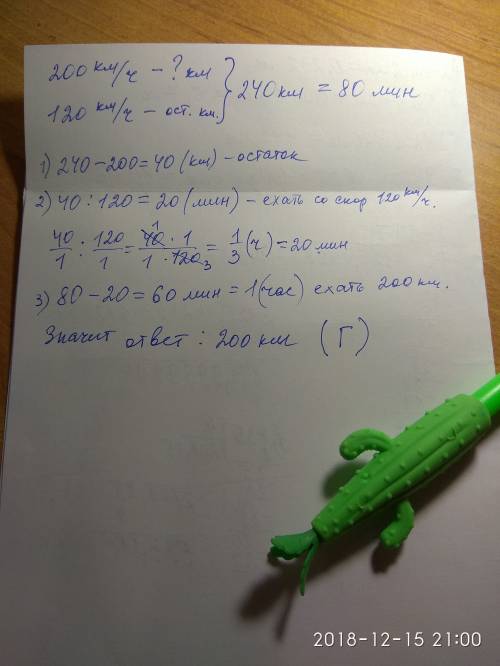 200 км/ч – ? км
120 км/ч – ост. км.
} 240 км = 80 мин
1) 240 – 200 = 40 (км) – остаток
2) 40 : 120 = 20 (мин) – ехать со скор 120 км/ч.
40/1 : 120/1 = 40 1 · 1 / 1 · 120 3 = 1/3 (ч) = 20 мин
3) 80 – 20 = 60 мин = 1 (час) ехать 200 км.
Значит ответ : 200 км (Г)
2018-12-15 21:00